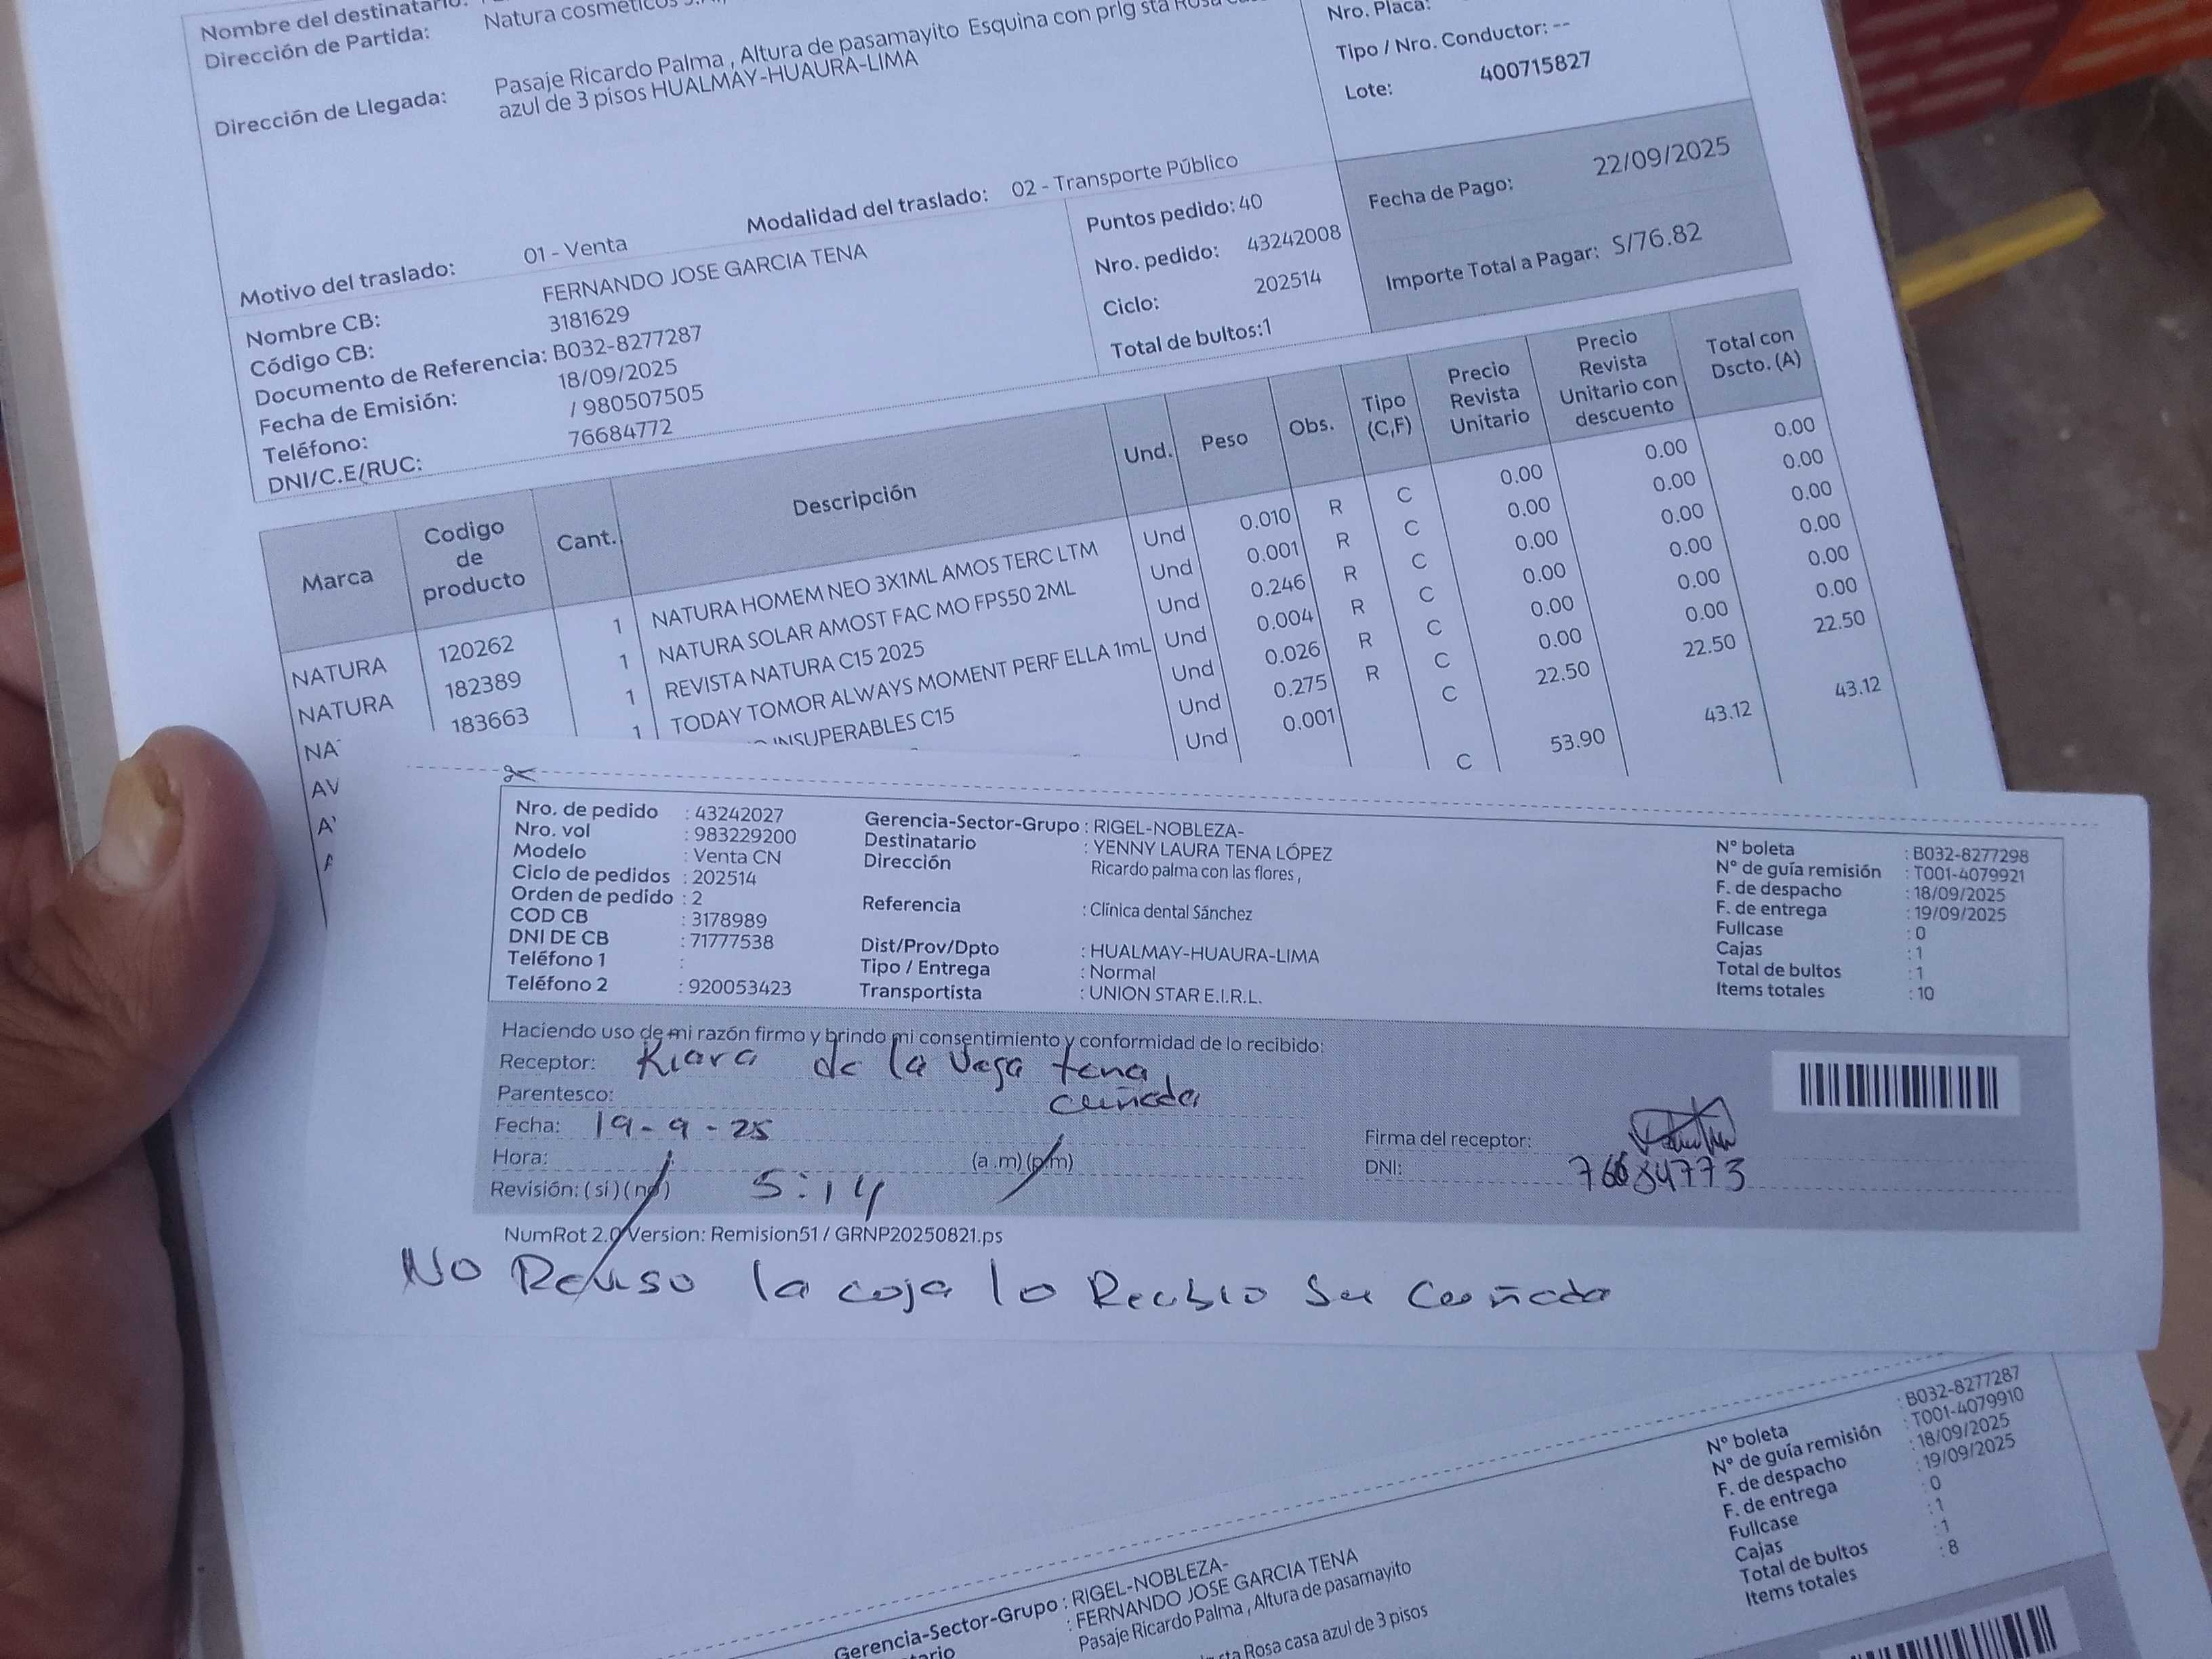 Nombre del destinatario:
Dirección de Partida: Natura cosméticos
Dirección de Llegada: Pasaje Ricardo Palma , Altura de pasamayito Esquina con prlg sta Rosa
azul de 3 pisos HUALMAY-HUAURA-LIMA
Nro. Placa:
Tipo / Nro. Conductor: --
Lote: 400715827
Motivo del traslado: 01 - Venta Modalidad del traslado: 02 - Transporte Público
Nombre CB: FERNANDO JOSE GARCIA TENA
Código CB: 3181629
Documento de Referencia: B032-8277287
Fecha de Emisión: 18/09/2025
Teléfono: / 980507505
DNI/C.E/RUC: 76684772
Puntos pedido: 40
Nro. pedido: 43242008
Ciclo: 202514
Total de bultos:1
Fecha de Pago: 22/09/2025
Importe Total a Pagar: S/76.82
Marca Codigo de producto Cant. Descripción Und. Peso Obs. Tipo (C,F) Precio Revista Unitario Precio Revista Unitario con descuento Total con Dscto. (A)
NATURA 120262 1 NATURA HOMEM NEO 3X1ML AMOS TERC LTM Und 0.010 R C 0.00 0.00 0.00
NATURA 182389 1 NATURA SOLAR AMOST FAC MO FPS50 2ML Und 0.001 R C 0.00 0.00 0.00
NA 183663 1 REVISTA NATURA C15 2025 Und 0.246 R C 0.00 0.00 0.00
AV 1 TODAY TOMOR ALWAYS MOMENT PERF ELLA 1mL Und 0.004 R C 0.00 0.00 0.00
INSUPERABLES C15 Und 0.026 R C 0.00 0.00 0.00
Und 0.275 R C 0.00 0.00 0.00
Und 0.001 C 22.50 22.50 22.50
C 53.90 43.12 43.12
Nro. de pedido : 43242027
Nro. vol : 983229200
Modelo : Venta CN
Ciclo de pedidos : 202514
Orden de pedido : 2
COD CB : 3178989
DNI DE CB : 71777538
Teléfono 1 :
Teléfono 2 : 920053423
Gerencia-Sector-Grupo : RIGEL-NOBLEZA-
Destinatario : YENNY LAURA TENA LÓPEZ
Dirección Ricardo palma con las flores ,
Referencia : Clínica dental Sánchez
Dist/Prov/Dpto : HUALMAY-HUAURA-LIMA
Tipo / Entrega : Normal
Transportista : UNION STAR E.I.R.L.
N° boleta : B032-8277298
N° de guía remisión : T001-4079921
F. de despacho : 18/09/2025
F. de entrega : 19/09/2025
Fullcase : 0
Cajas : 1
Total de bultos : 1
Items totales : 10
Haciendo uso de mi razón firmo y brindo mi consentimiento y conformidad de lo recibido:
Receptor: Kiara de la Vega tena
Parentesco: cuñada
Fecha: 19-9-25
Hora: 5:14 (a.m)(p.m)
Revisión: ( si ) ( no )
Firma del receptor:
DNI: 76684773
NumRot 2.0 Version: Remision51 / GRNP20250821.ps
No Reviso la caja lo Recibio Su Cuñada
N° boleta : B032-8277287
N° de guía remisión : T001-4079910
F. de despacho : 18/09/2025
F. de entrega : 19/09/2025
Fullcase : 0
Cajas : 1
Total de bultos : 1
Items totales : 8
Gerencia-Sector-Grupo : RIGEL-NOBLEZA-
: FERNANDO JOSE GARCIA TENA
Pasaje Ricardo Palma , Altura de pasamayito
sta Rosa casa azul de 3 pisos